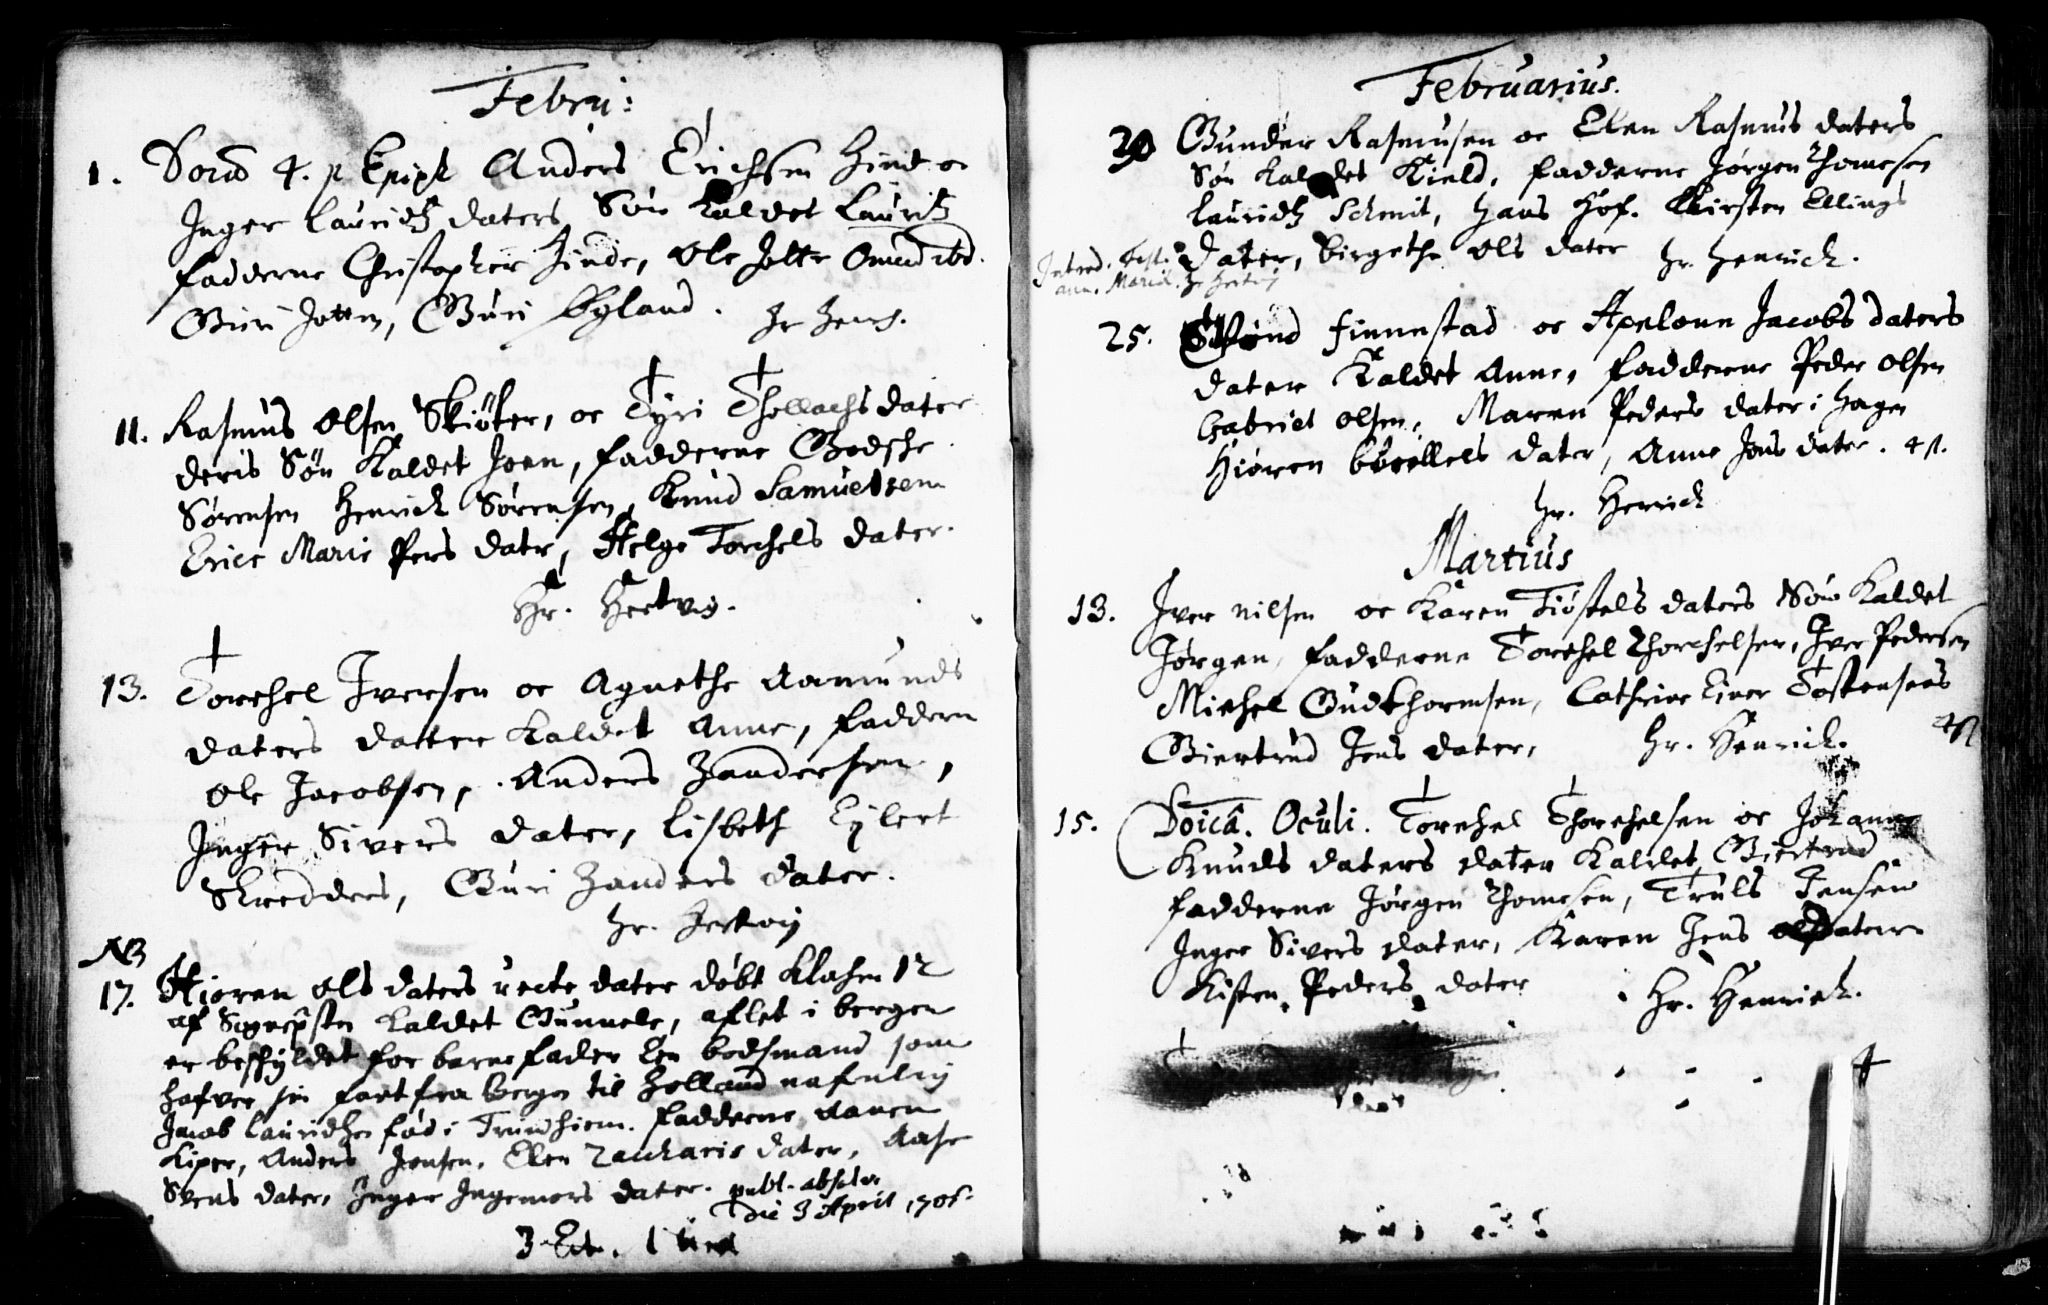 Febru:
1. Doīca 4. p Epiph Anders Erichsen Hind oc
Inger Lauridtz daters Søn Kaldet Lauritz
fadderne Christopher Hinde, Ole Jotte
Guri Jotten, Guri Byland. Hr Jens.
11. Rasmus Olsen Skiøter, oc Tyri Thollachs dater
deris Søn Kaldet Joen, fadderne Godske
Sørensen Henrich Sørensen, Knud Samuelsen
Erice Marie Pers datr, Helge Torchels dater.
Hr. Hertvig.
13. Torchel Iversen oc Agnethe Aamunds
daters datter Kaldet Anne, faddern
Ole Jacobsen, Anders Zandersen,
Inger Sivers dater, Lisbeth Eylert
Skredders, Guri Zanders dater.
Hr. Hertvig
NB
17. Hioren Ols daters uecte dater døbt Klosken 12
af kaldet Gunnele, aflet i bergen
er beskyldet for barne fader En bodsmand som
hafver sin fart fra Bergen til Holland nafnlig
Jacob Lauridtzen fød i Trundhiem. fadderne
Kiper, Anders Jensen, Elen Zacharis dater, Aase
Svens dater, Inger Ingemors dater. publ. absolv.
Die 3 April 1705.
Februarius.
20 Gunder Rasmusen oc Elen Rasmus daters
Søn Kaldet Kield, fadderne Jørgen Thomesen
Lauridtz Schmit, Hans Hof. Kirsten Ellings
dater, Birgethe Ols dater Hr. Henrich.
Introd. festo
ann. Mariæ. Hr Hertvig
25. Finnestad oc Apelone Jacobs daters
dater Kaldet Anne, fadderne Peder Olsen
Gabriel Olsen, Maren Peders dater i Hagen
Hioren Børells dater, Anne Jons dater.
Hr. Henrich
Martius
13. Iver Nilsen oc Karen Tiøstels daters Søn Kaldet
Jørgen, fadderne Torchel Thorchelsen, Iver Pedersen
Michel Gudthormsen, Cathrine Einer Tostensens
Giertrud Jens dater, Hr. Henrich.
15. Doīcâ. Oculi. Torchel Thorchelsen oc Johanne
Knuds daters dater Kaldet Giertrud
fadderne Jørgen Thomesen, Truls Jensen
Inger Sivers dater, Karen Jens dater
Kisten Peders dater Hr. Henrich.